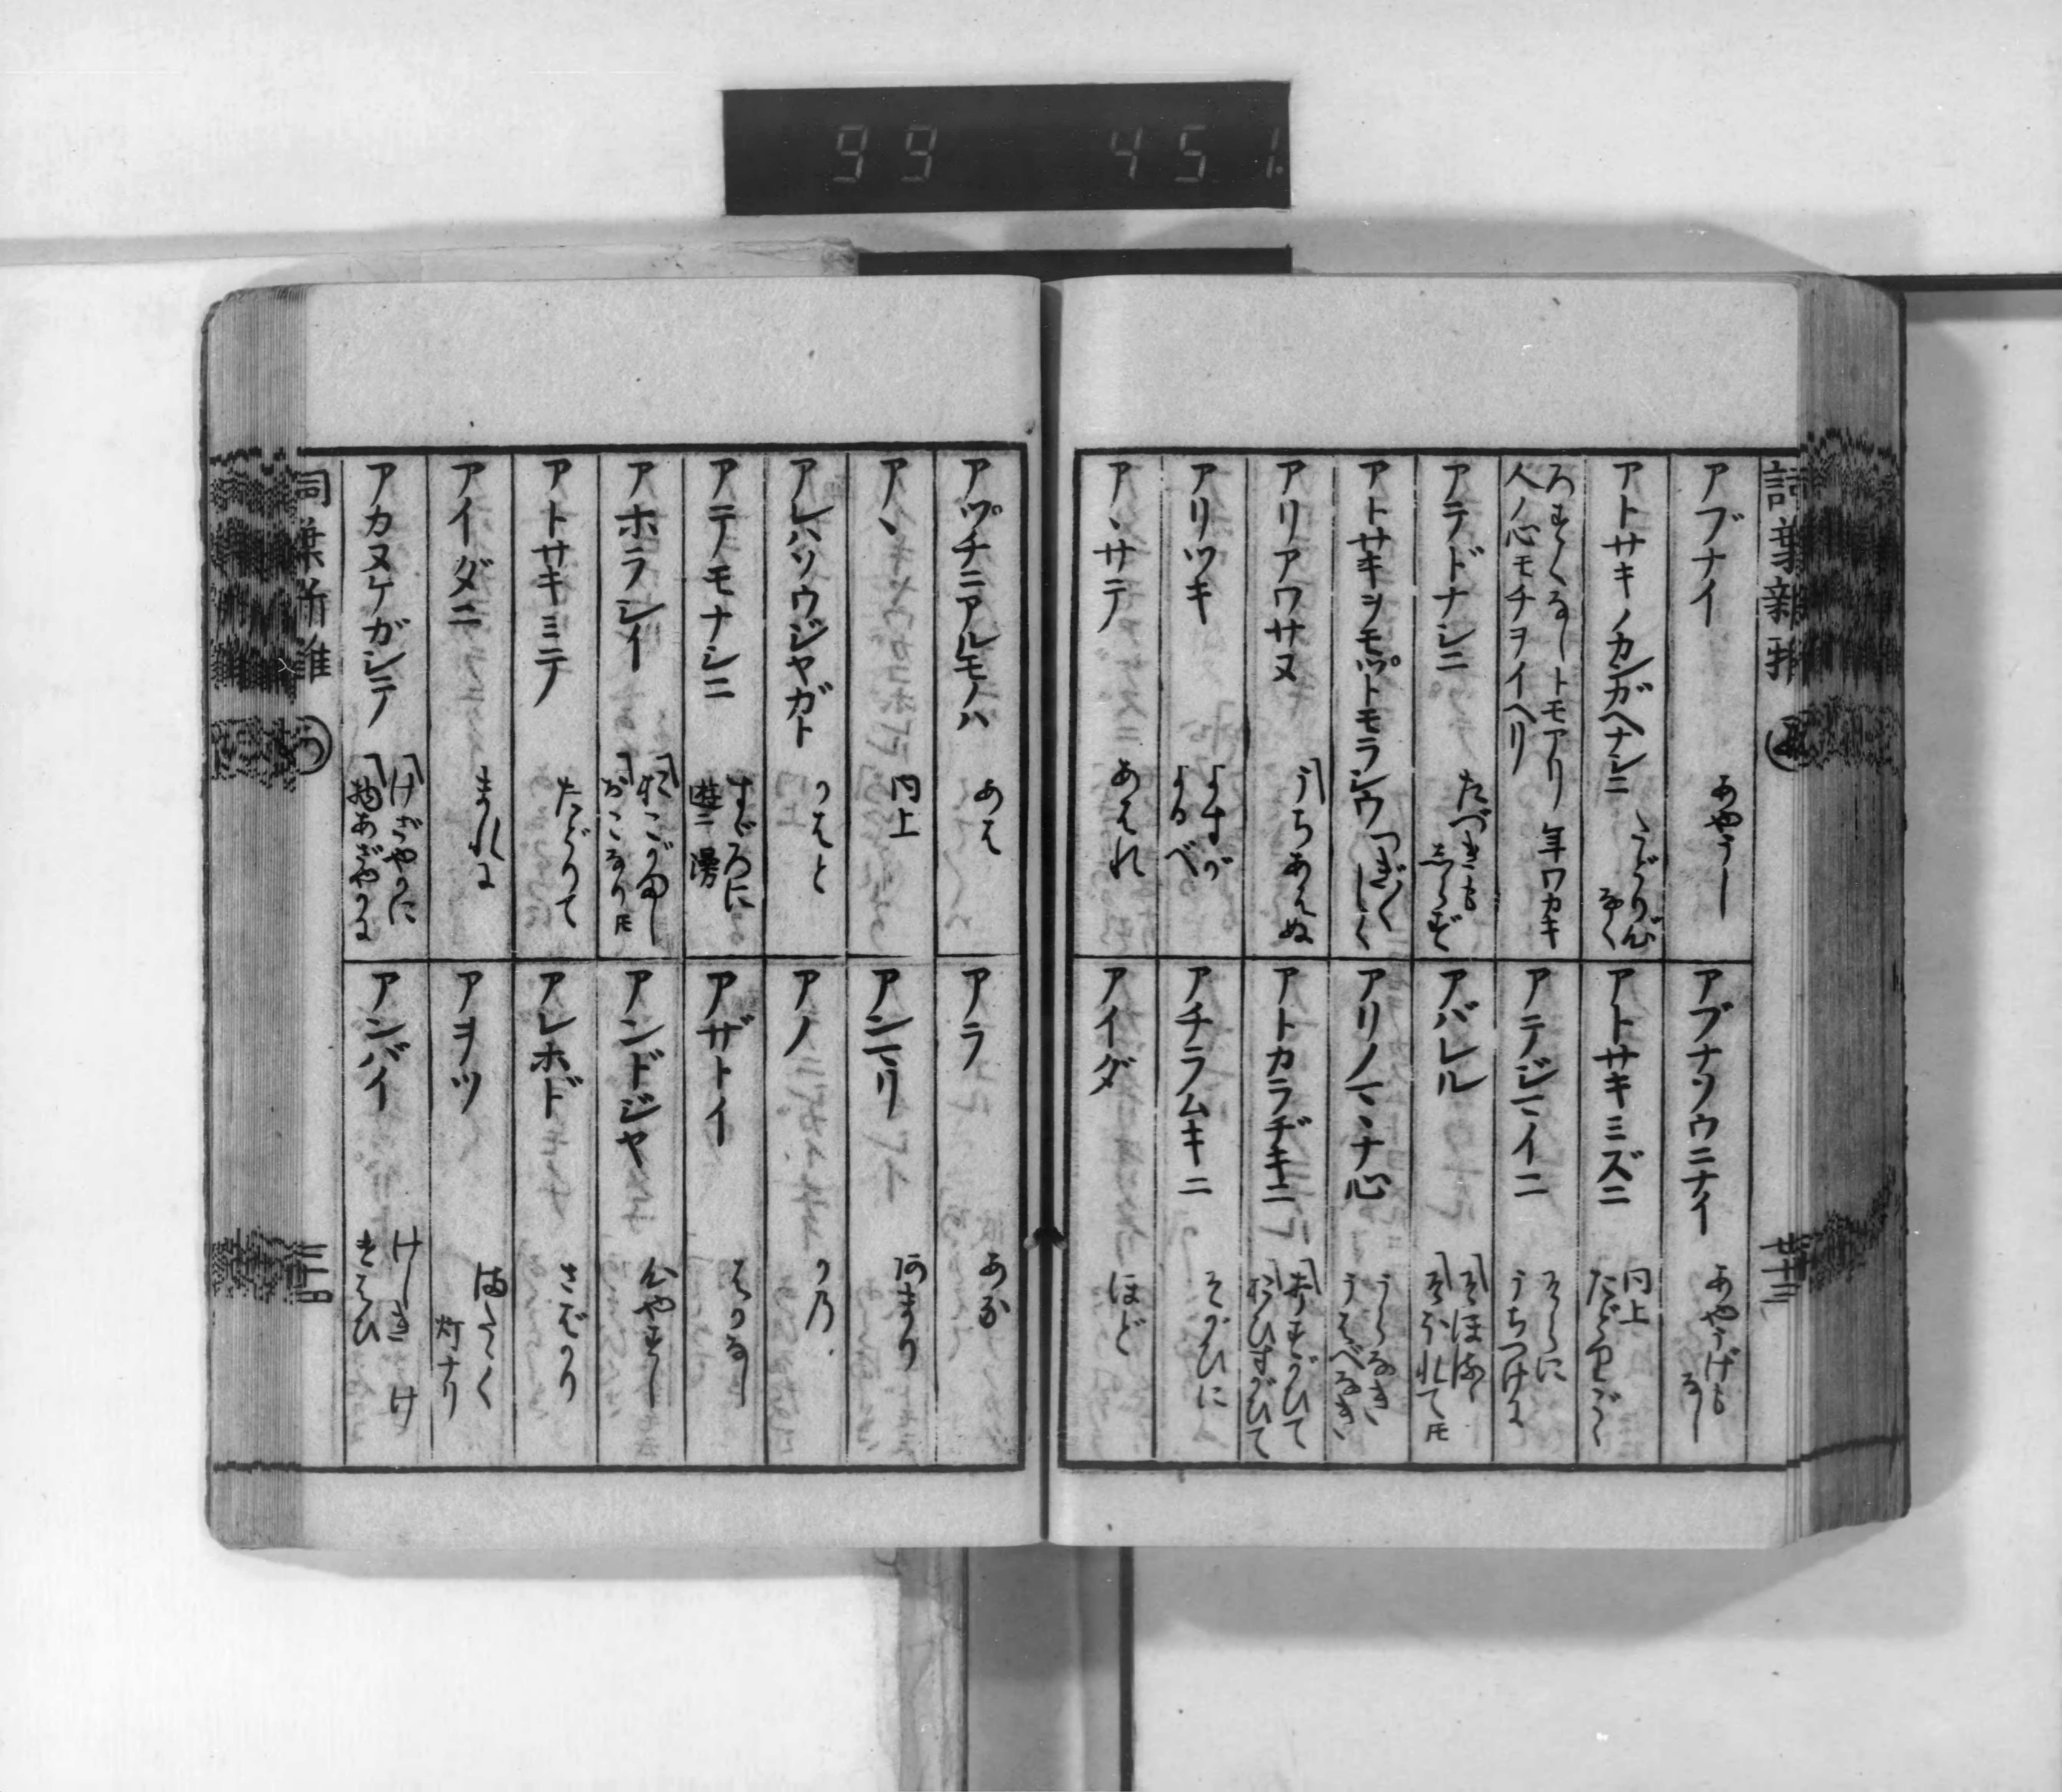 99 451.
詞葉新雅
廿三
アブナイ
あやうし
アトサキノカンガヘナシニ
トモアリ 年ワカキ
人ノ心モチヲイヘリ
アテドナシニ
たづきも
しらず
アトサキヲモツトモラシウ
アリアワサヌ
うちあはぬ
アリツキ
よすが
よるべ
アヽサテ
あはれ
アブナソウニナイ
あやうげも
なし
アトサキミズニ
同上
アテジマイニ
そらに
うちつけに
アバレル
アリノマヽナ心
うらなき
うはべなき
アトカラヂキニ
おひすがひて
アチラムキニ
そがひに
アイダ
ほど
アヅチニアルモノハ
あは
アヽ
同上
アレハソウジヤガト
かはと
アテモナシニ
すゞろに
アホラシイ
おこがまし
おこなり
アトサキミテ
たどりて
アイダニ
まれに
アカヌケガシテ
けざやかに
物あざやかに
アラ
あな
アンマリ
あまり
アノ
かの
アザトイ
はかなし
アンドジヤ
心やすし
アレホド
さばかり
アヲツ
またゝく
灯ナリ
アンバイ
けしき け
けはひ
詞葉新雅